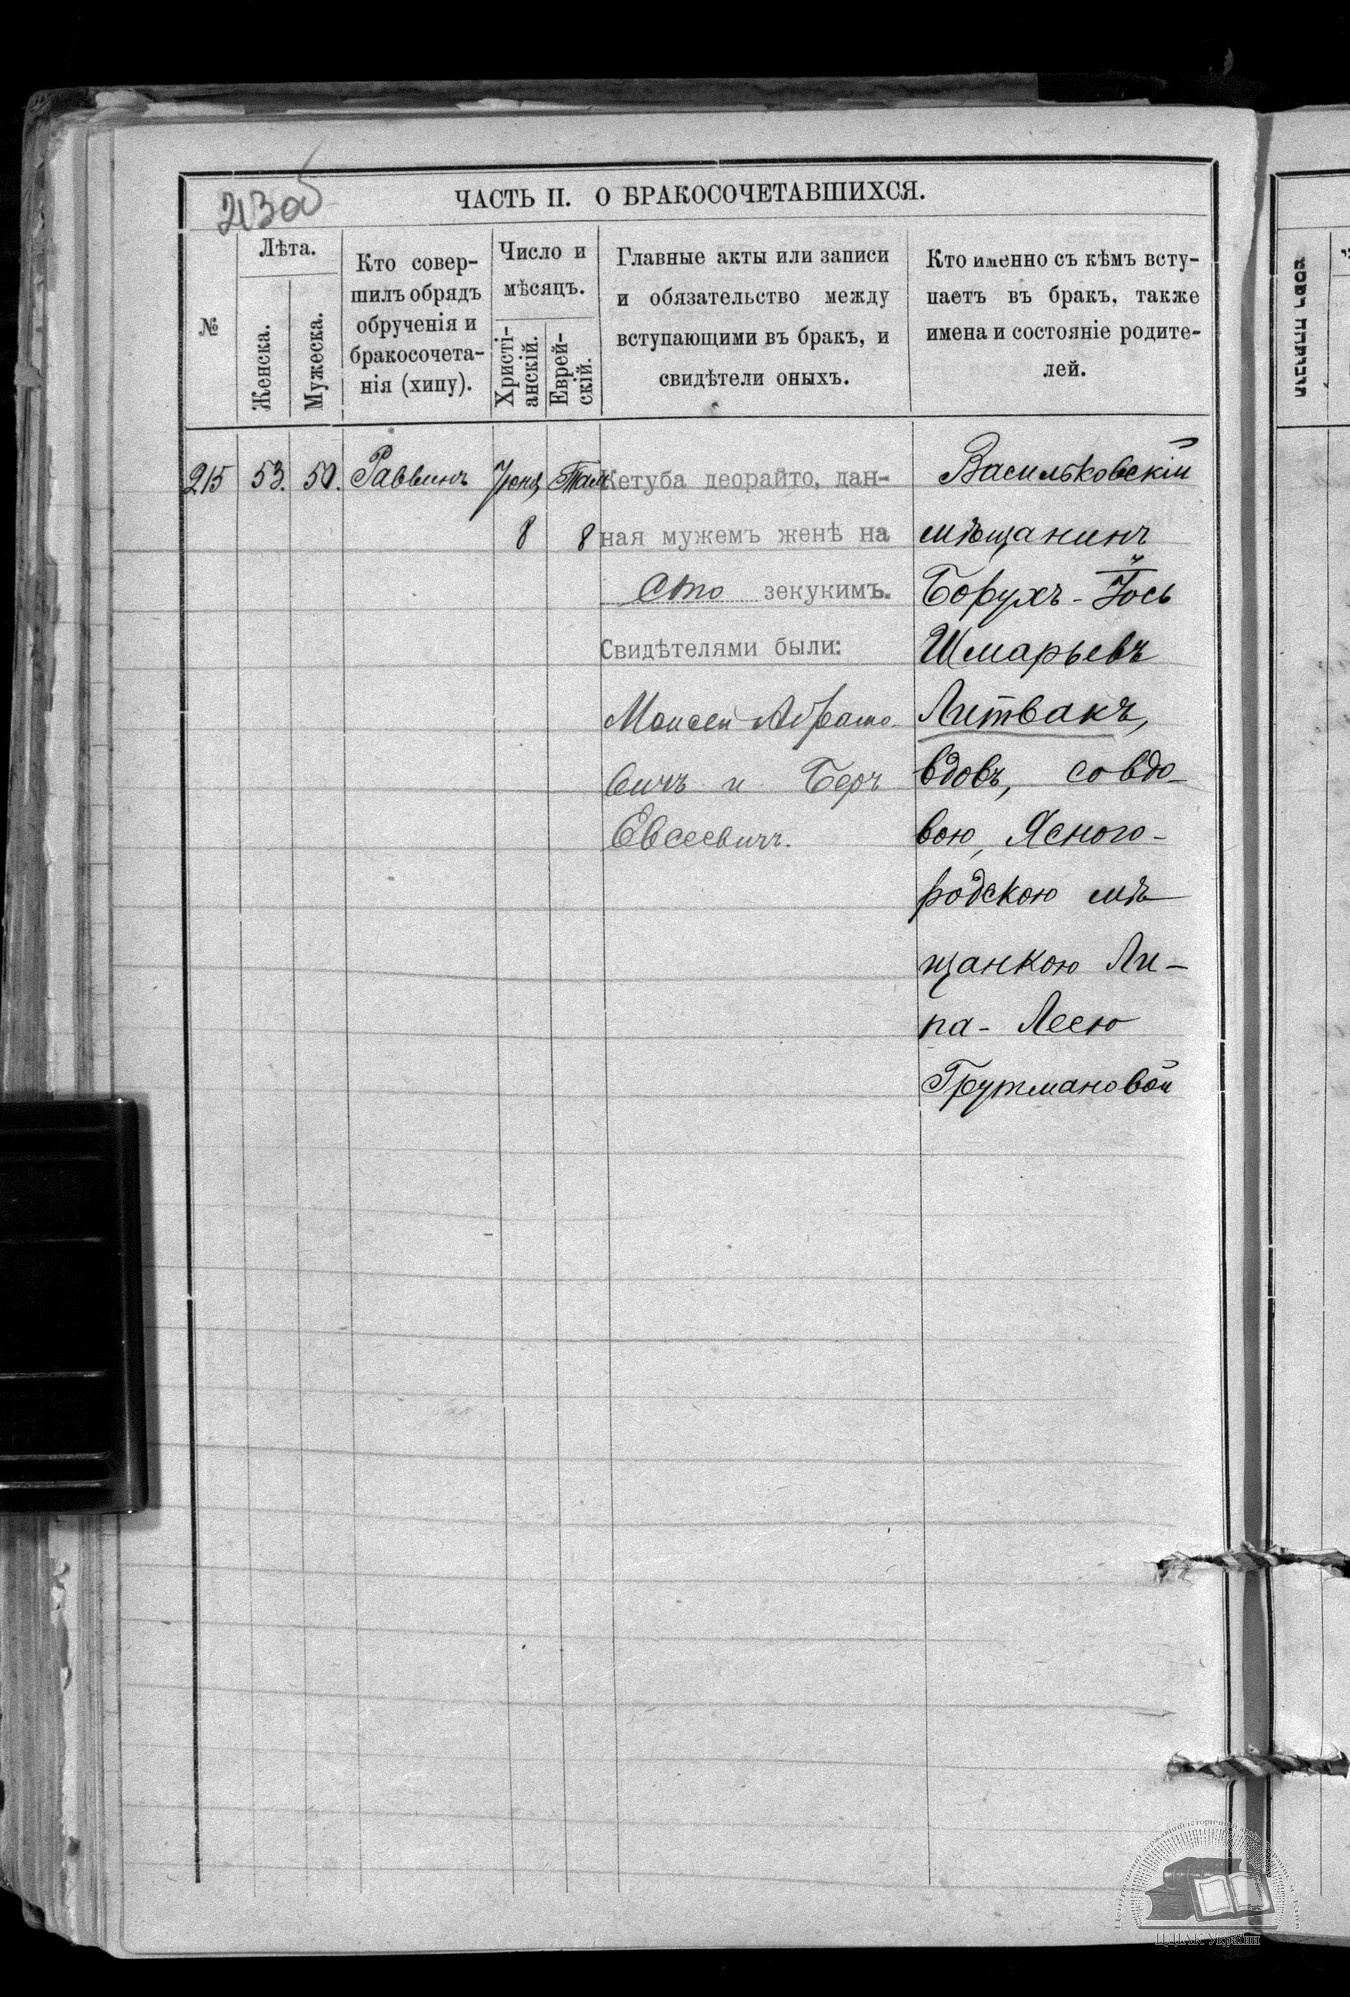 213об
ЧАСТЬ II. О БРАКОСОЧЕТАВШИХСЯ.
№
Лѣта.
Женска.
Мужеска.
Кто совер-
шилъ обрядъ
обрученія и
бракосочета-
нія (хипу).
Число и
мѣсяцъ.
Христі-
анскій.
Еврей-
скій.
Главные акты или записи
и обязательство между
вступающими въ бракъ, и
свидѣтели оныхъ.
Кто именно съ кѣмъ всту-
паетъ въ бракъ, также
имена и состояніе родите-
лей.
215
53.
50.
Раввинъ
Іюня
8
Там
8
Кетуба деорайто, дан-
ная мужемъ женѣ на
сто зекукимъ.
Свидѣтелями были:
Моисей Абрамо-
вичъ и Беръ
Евсеевичъ.
Васильковскій
мѣщанинъ
Борухъ-Іось
Шмарьевъ
Литвакъ,
вдовъ, со вдо-
вою, Ясного-
родскою мѣ
щанкою Ли-
па-Лесю
Грутмановой
ЦДІАК України